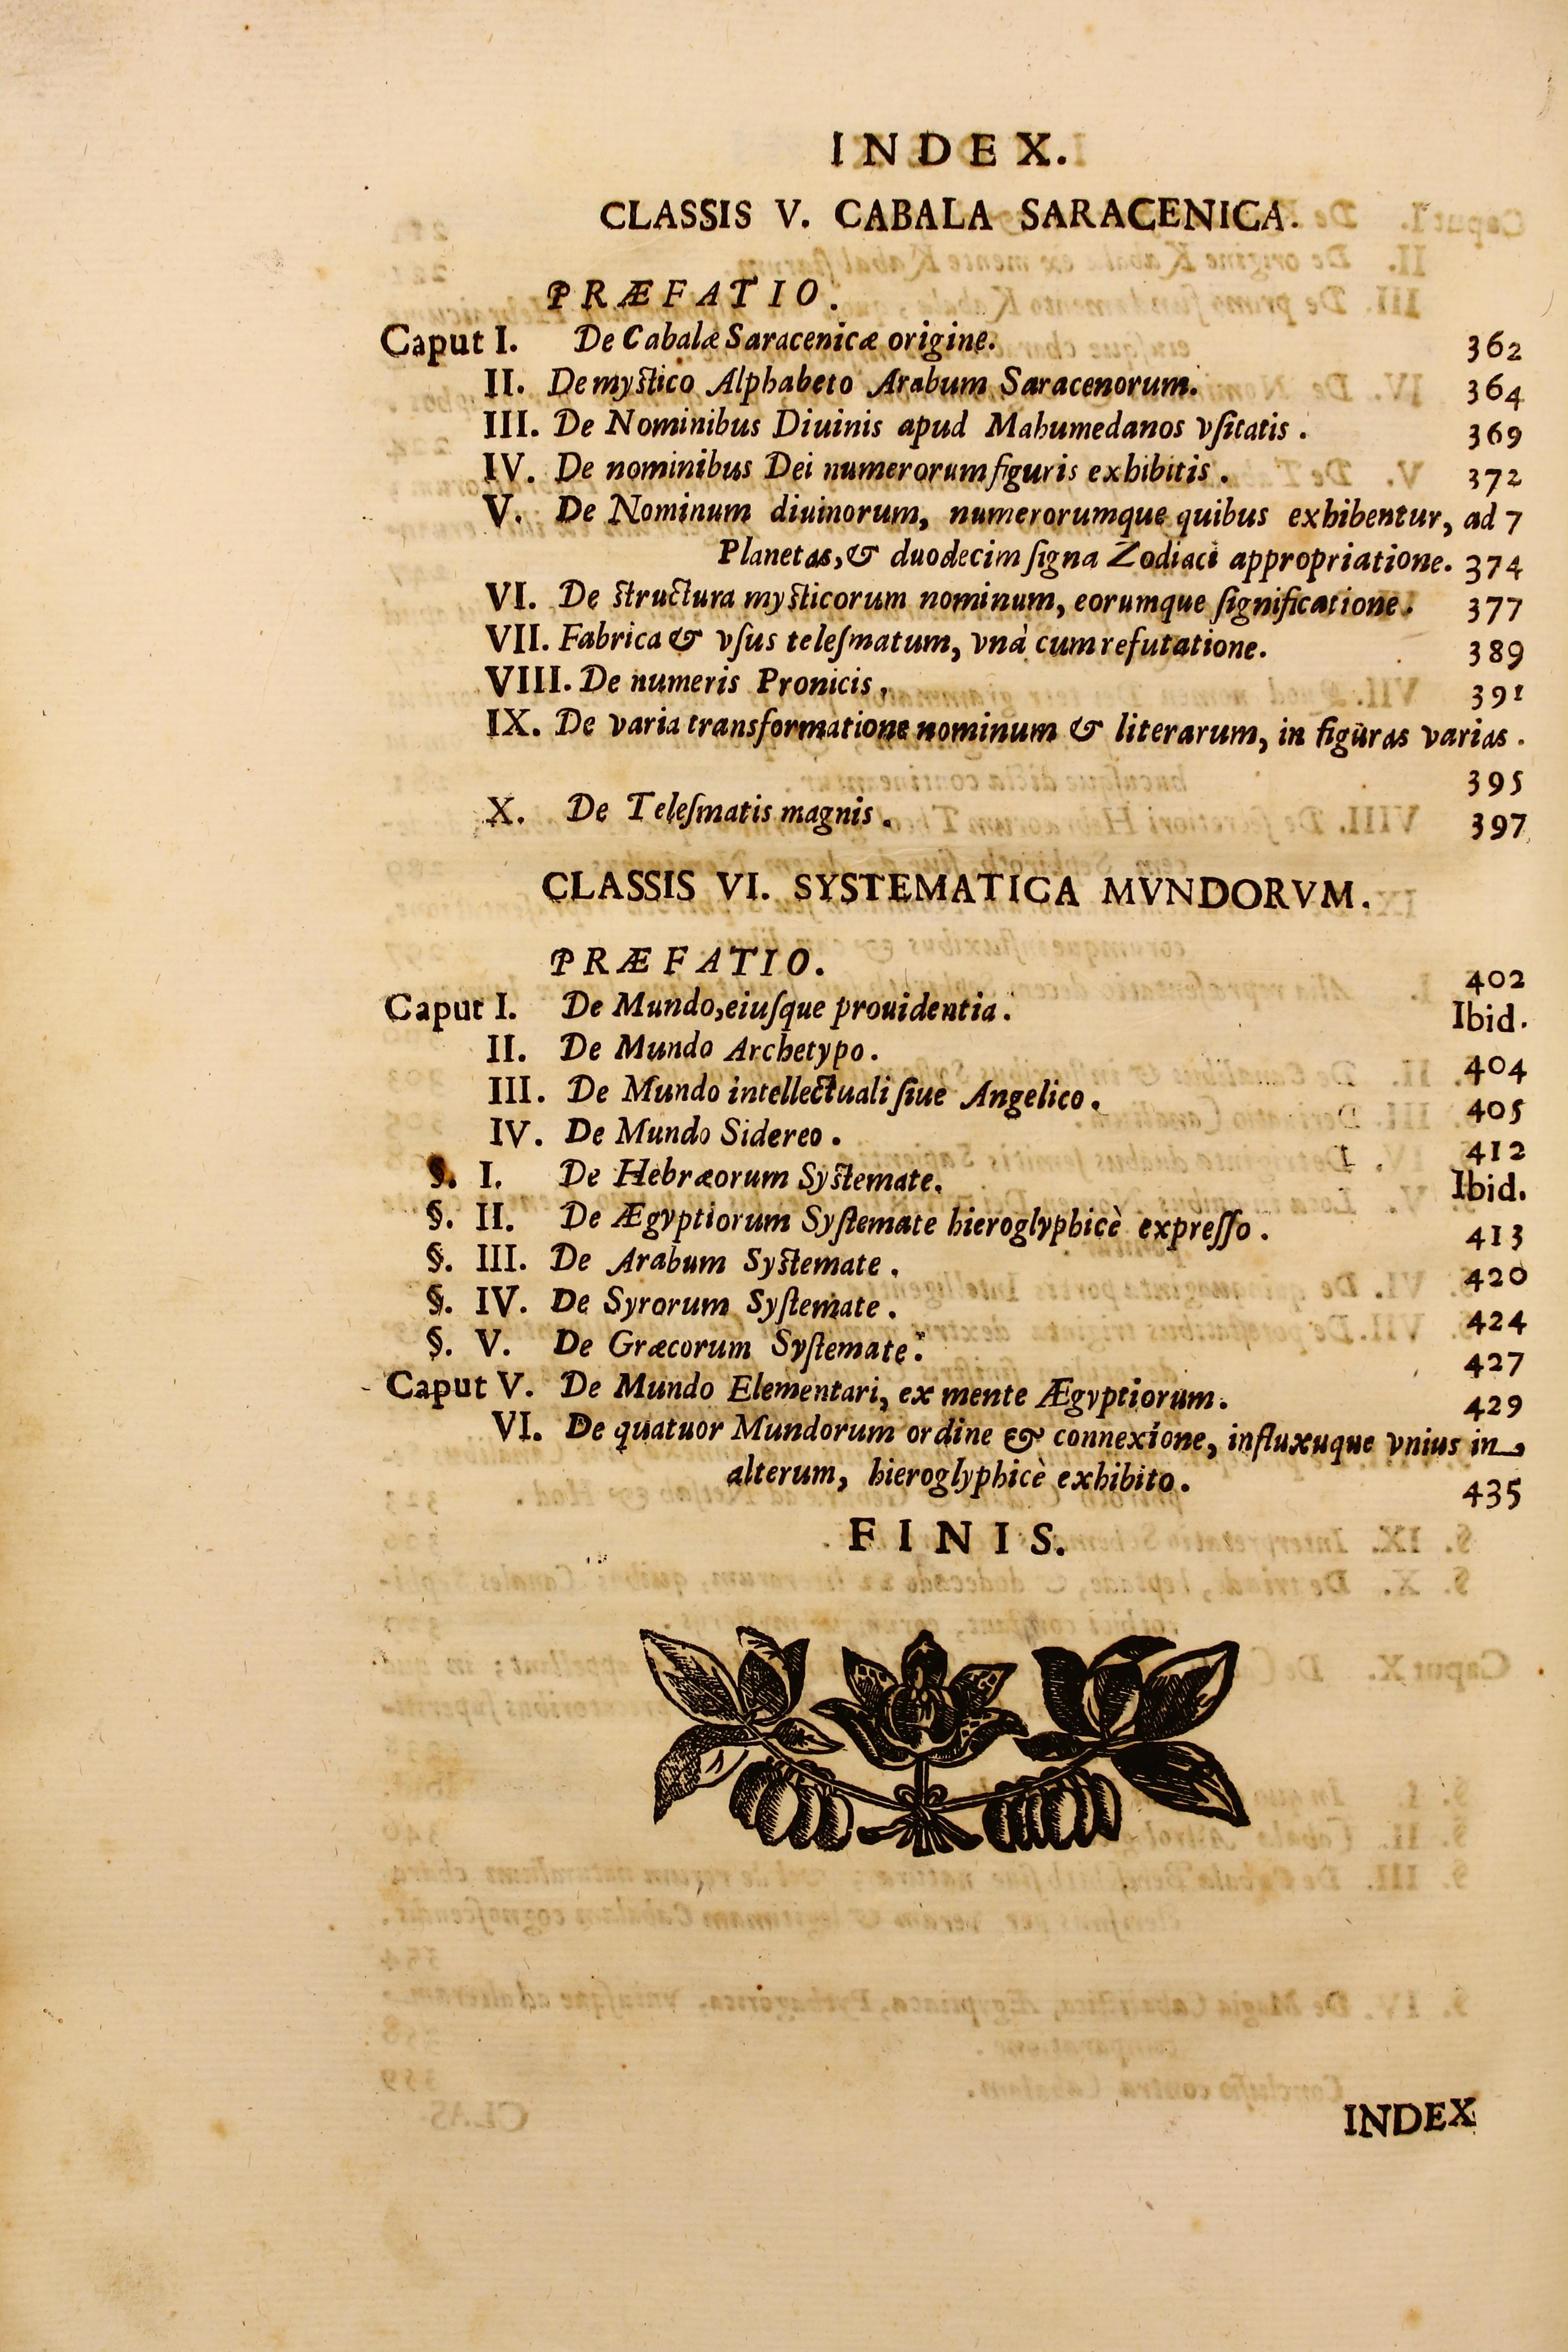 INDEX.
CLASSIS V. CABALA SARACENICA.
PRÆFATIO.
Caput I. De Cabalæ Saracenicæ origine. 362
II. De mystico Alphabeto Arabum Saracenorum. 364
III. De Nominibus Diuinis apud Mahumedanos vſitatis. 369
IV. De nominibus Dei numerorum figuris exhibitis. 372
V. De Nominum diuinorum, numerorumque quibus exhibentur, ad 7
Planetas, & duodecim ſigna Zodiaci appropriatione. 374
VI. De structura mysticorum nominum, eorumque ſignificatione. 377
VII. Fabrica & vſus teleſmatum, vnà cum refutatione. 389
VIII. De numeris Pronicis. 391
IX. De varia transformatione nominum & literarum, in figuras varias.
395
X. De Teleſmatis magnis. 397
CLASSIS VI. SYSTEMATICA MVNDORVM.
PRÆFATIO. 402
Caput I. De Mundo, eiuſque prouidentia. Ibid.
II. De Mundo Archetypo. 404
III. De Mundo intellectuali ſiue Angelico. 405
IV. De Mundo Sidereo. 412
§. I. De Hebræorum Systemate. Ibid.
§. II. De Ægyptiorum Syſtemate hieroglyphicè expreſſo. 413
§. III. De Arabum Systemate. 420
§. IV. De Syrorum Syſtemate. 424
§. V. De Græcorum Syſtemate. 427
Caput V. De Mundo Elementari, ex mente Ægyptiorum. 429
VI. De quatuor Mundorum ordine & connexione, influxuque vnius in
alterum, hieroglyphicè exhibito. 435
FINIS.
INDEX